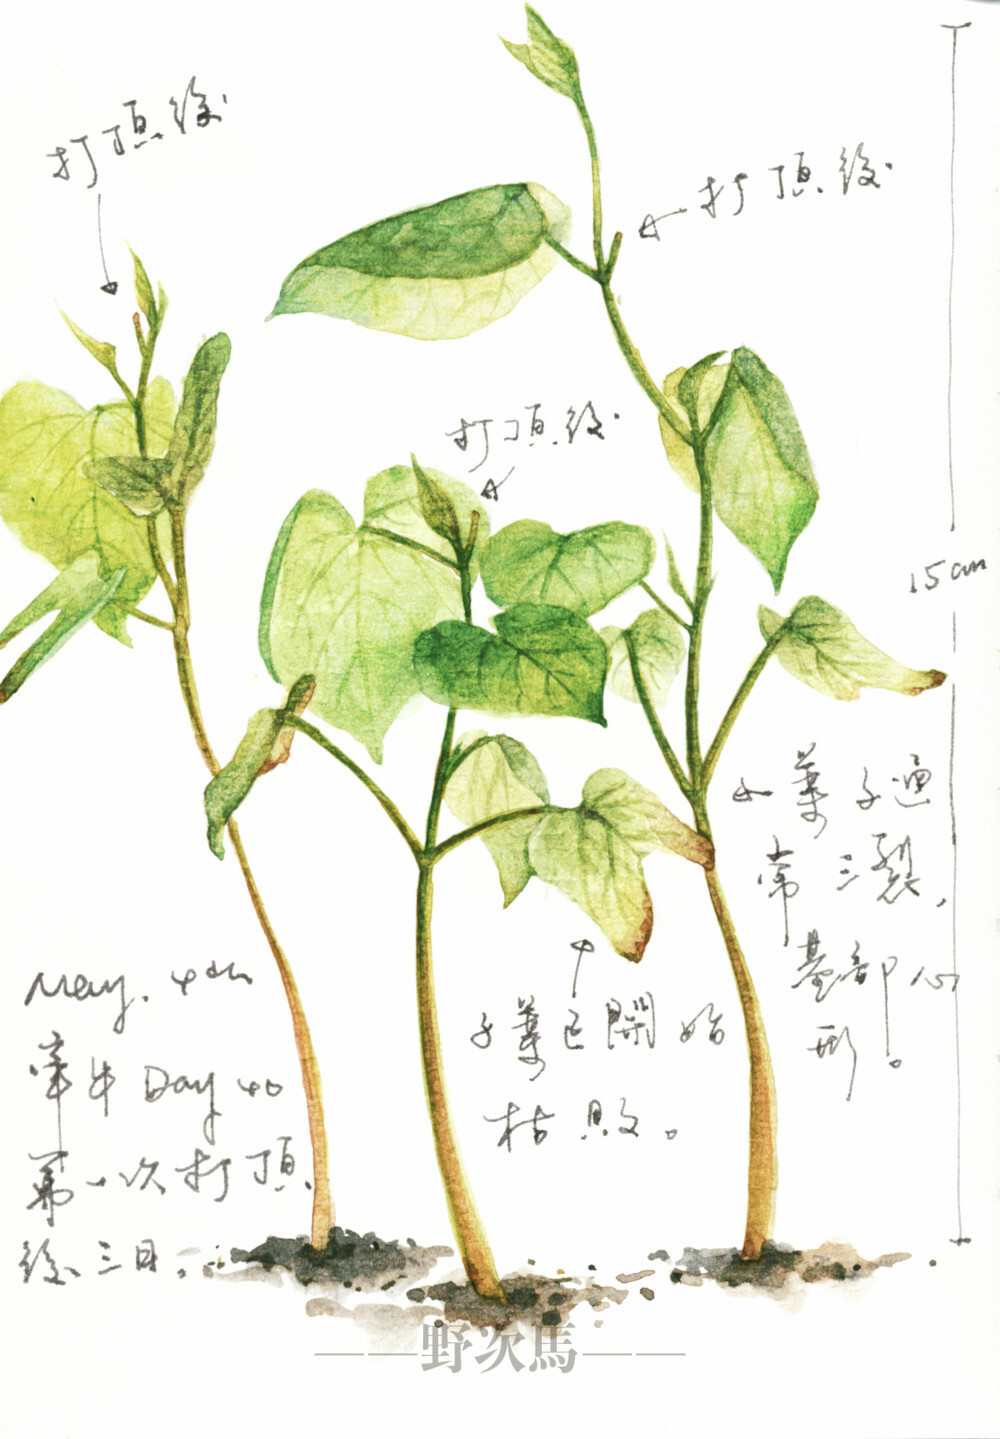 打頂後.
打頂後.
打頂後.
15cm
葉子通
常三裂,
基部心
形。
子葉已開始
枯敗。
May. 4th
牽牛 Day 40
第一次打頂
後三日。
——野次馬——